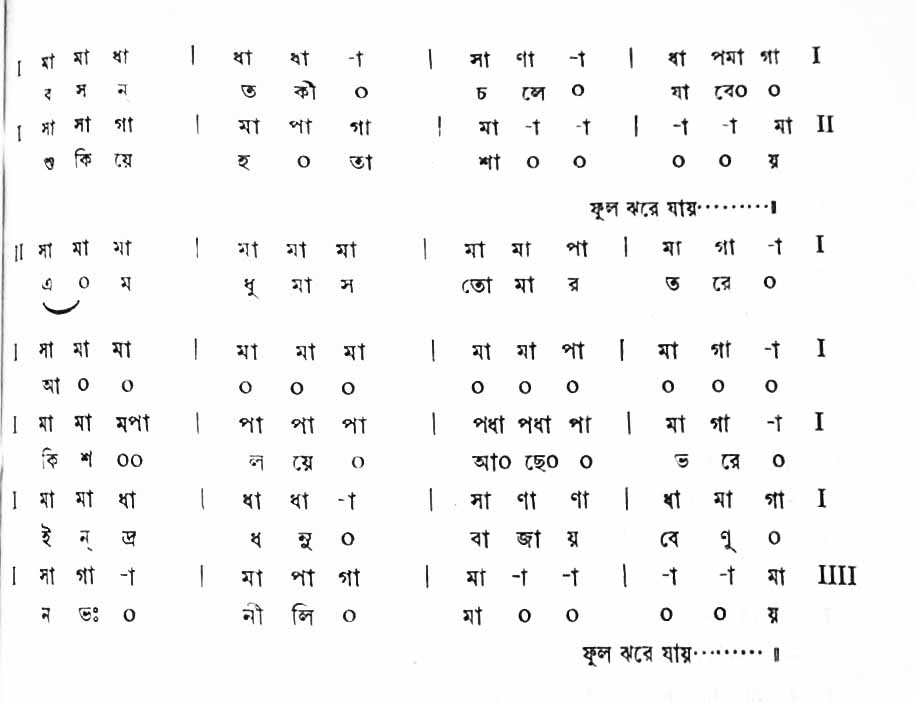 I মা মা ধা | ধা ধা -া | সা ণা -া | ধা পমা গা I
ব স ন্ ত কী ০ চ লে ০ যা বে০ ০
I সা সা গা | মা পা গা | মা -া -া | -া -া মা II
শু কি য়ে হ ০ তা শা ০ ০ ০ ০ য়
ফুল ঝরে যায়·········॥
II সা মা মা | মা মা মা | মা মা পা | মা গা -া I
এ ০ ম ধু মা স তো মা র ত রে ০
I সা মা মা | মা মা মা | মা মা পা | মা গা -া I
আ ০ ০ ০ ০ ০ ০ ০ ০ ০ ০ ০
I মা মা মপা | পা পা পা | পধা পধা পা | মা গা -া I
কি শ ০০ ল য়ে ০ আ০ ছে০ ০ ভ রে ০
I মা মা ধা | ধা ধা -া | সা ণা ণা | ধা মা গা I
ই ন্ দ্র ধ নু ০ বা জা য় বে ণু ০
I সা গা -া | মা পা গা | মা -া -া | -া -া মা IIII
ন ভঃ ০ নী লি ০ মা ০ ০ ০ ০ য়
ফুল ঝরে যায়·········॥